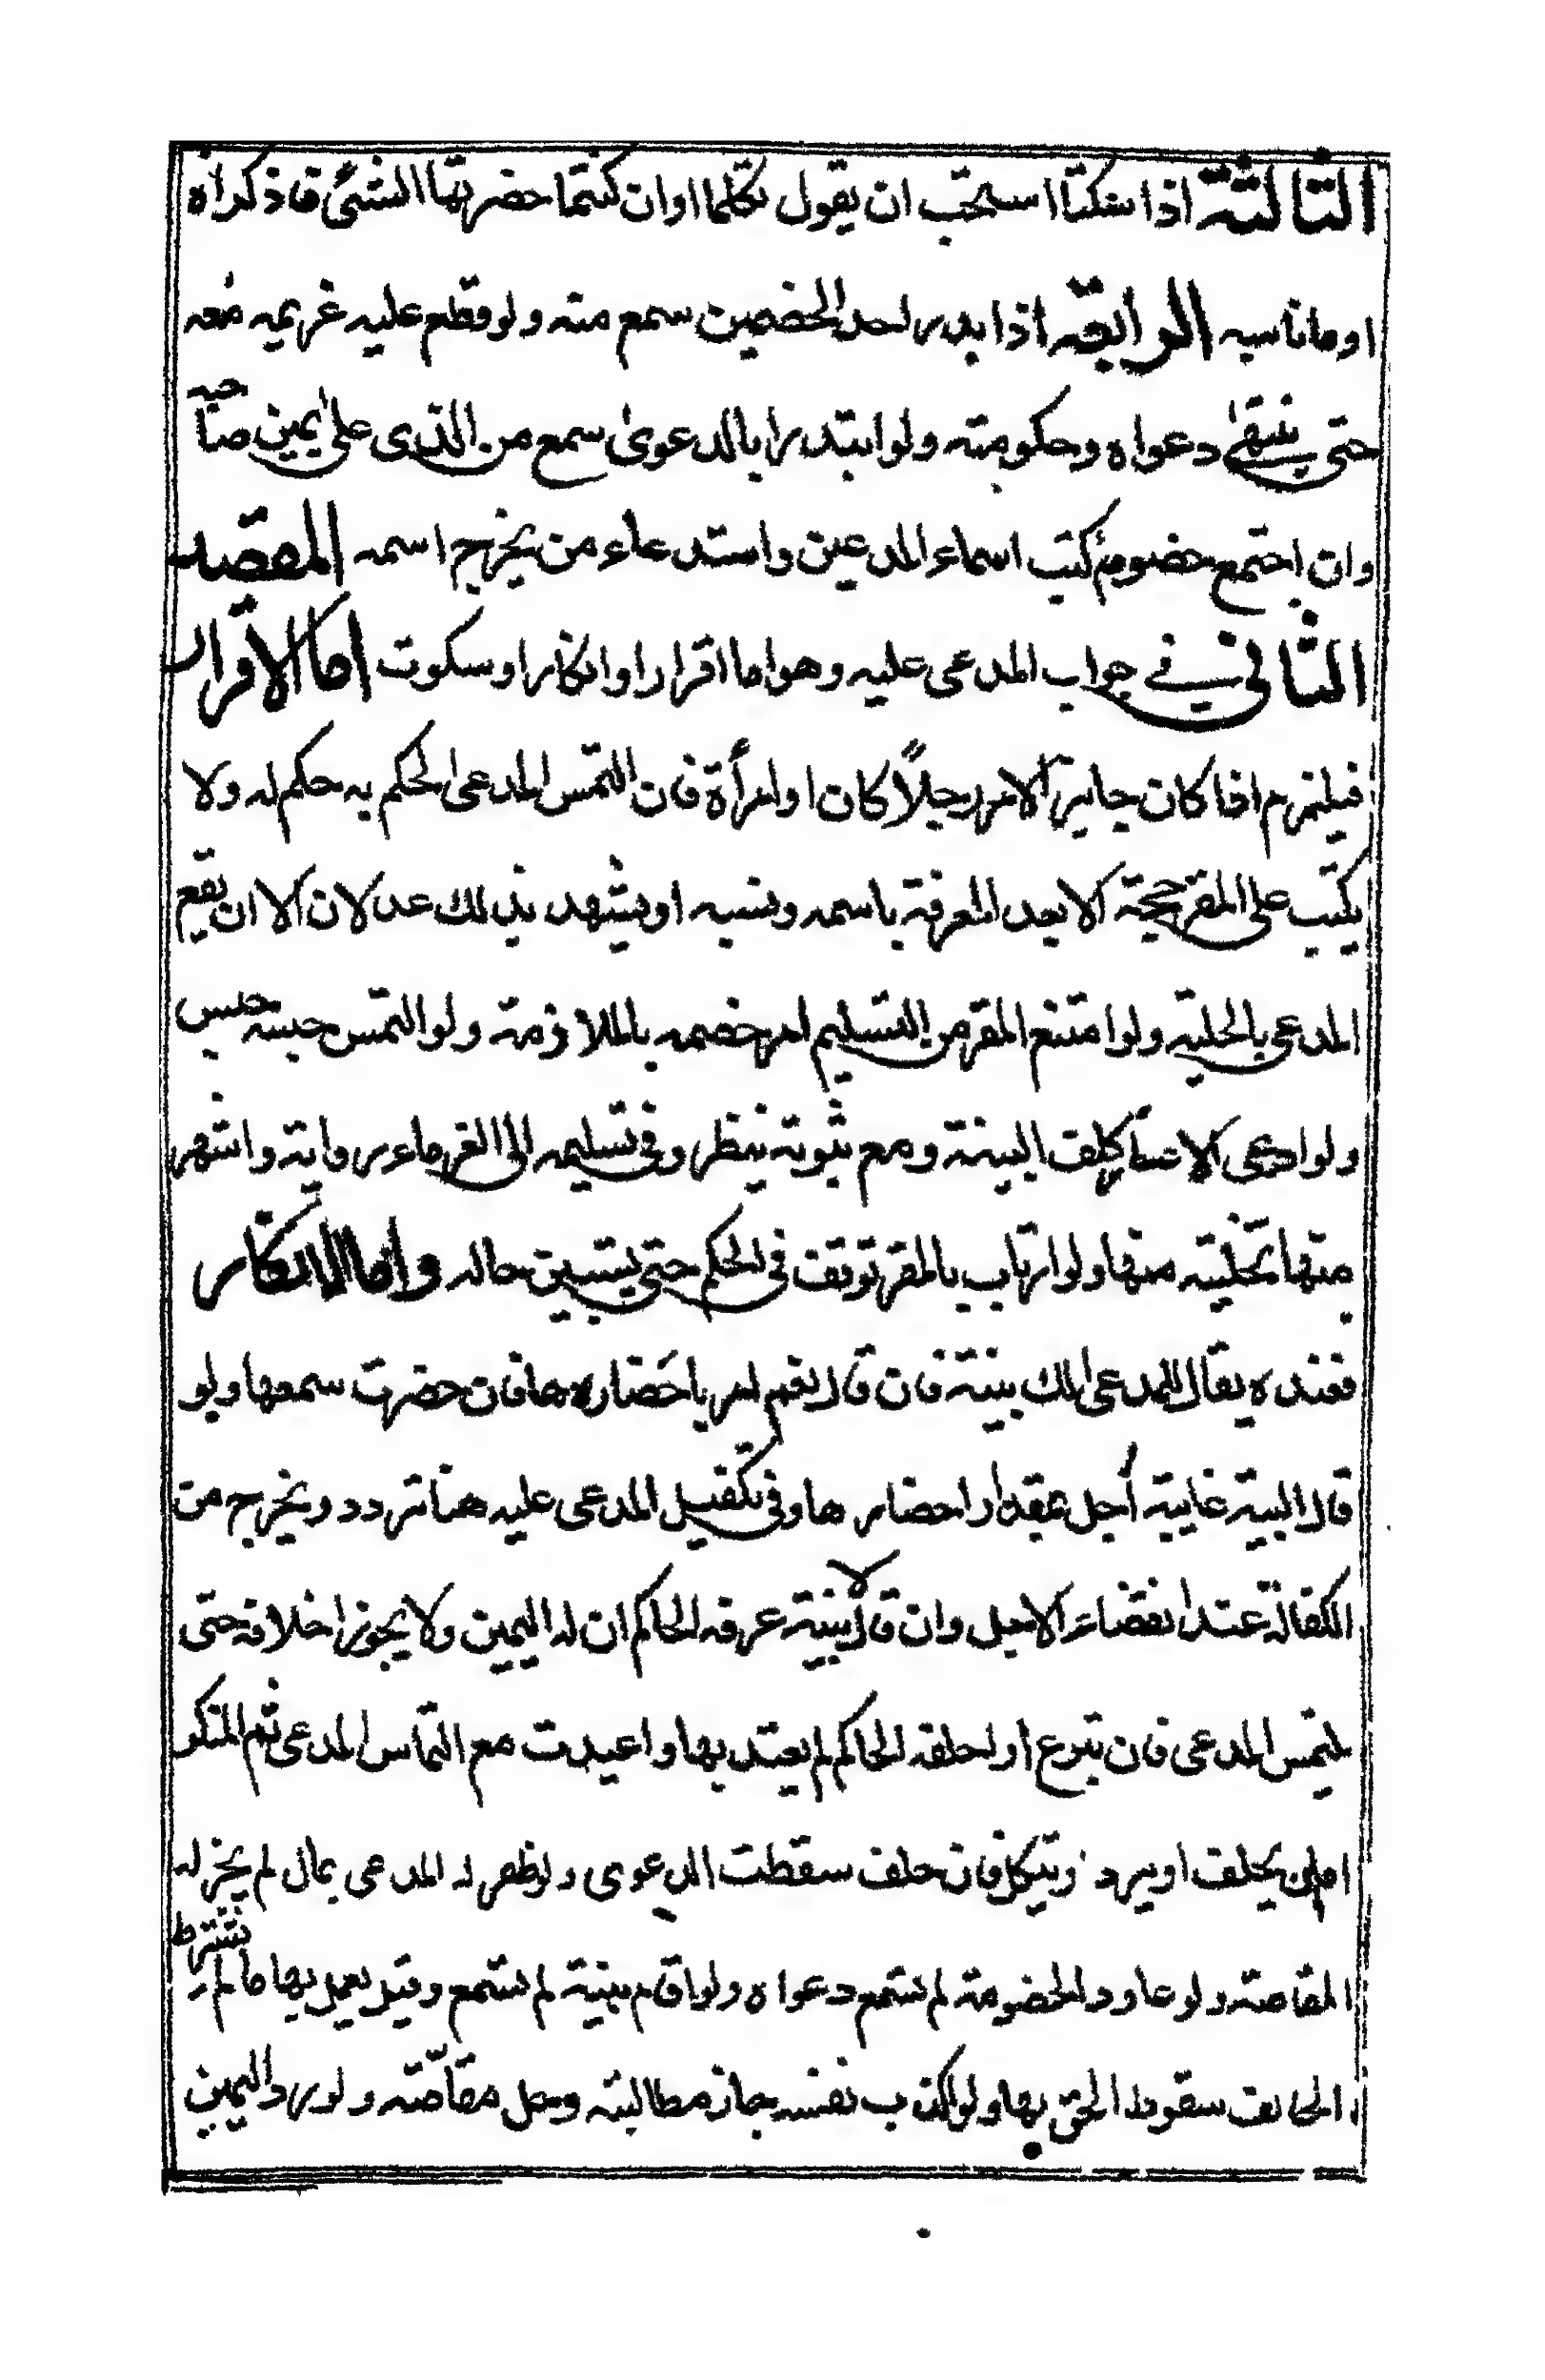 الثالثة اذا سكتا استحب ان يقول تكلما او ان كنتما حضرتما الشئ فاذكراه
او ما ناسبه الرابعة اذا بدر احد الخصمين سمع منه ولو قطع عليه غريمه منعه
حتى ينتهى دعواه وحكومته ولو ابتدرا بالدعوى سمع من الذى على يمين صاحبه
وان اجتمع خصوم كتب اسماء المدعين واستدعاء من يخرج اسمه المقصد
الثانى فى جواب المدعى عليه وهو اما اقرار او انكار او سكوت اما الاقرار
فيلزم اذا كان جايز الامر رجلاً كان او امرأة فان التمس المدعى الحكم به حكم له ولا
يكتب على المقر حجة الا بعد المعرفة باسمه ونسبه او يشهد بذلك عدلان الا ان يقع
المدعى بالحلية ولو امتنع المقر من التسليم امر خصمه بالملازمة ولو التمس حبسه حبس
ولو ادعى الاعسار كلف البينة ومع ثبوته ينظر وفى تسليمه الى الغرماء رواية واشهر
منها تخليته منها ولو ارتاب بالمقر توقف فى الحكم حتى يتبين حاله واما الانكار
فعنده يقال للمدعى الك بينة فان قال نعم امر باحضارها فان حضرت سمعها ولو
قال البينة غايبة أجل بمقدار احضارها وفى تكفيل المدعى عليه هنا تردد ويخرج من
الكفالة عند انقضاء الاجل وان قال لا بينة عرفه الحاكم ان له اليمين ولا يجوز احلافه حتى
يلتمس المدعى فان تبرع او احلفه الحاكم لم يعتد بها واعيدت مع التماس المدعى ثم المنكر
اما ان يحلف او يرد او ينكل فان حلف سقطت الدعوى ولو ظفر له المدعى بمال لم يجز له
المقاصة ولو عاود الخصومة لم تسمع دعواه ولو اقام بينة لم تسمع وقيل يعمل بها ما لم يشترط
الحالف سقوط الحق بها ولو اكذب نفسه جاز مطالبته وحل مقاصّته ولو رد اليمين